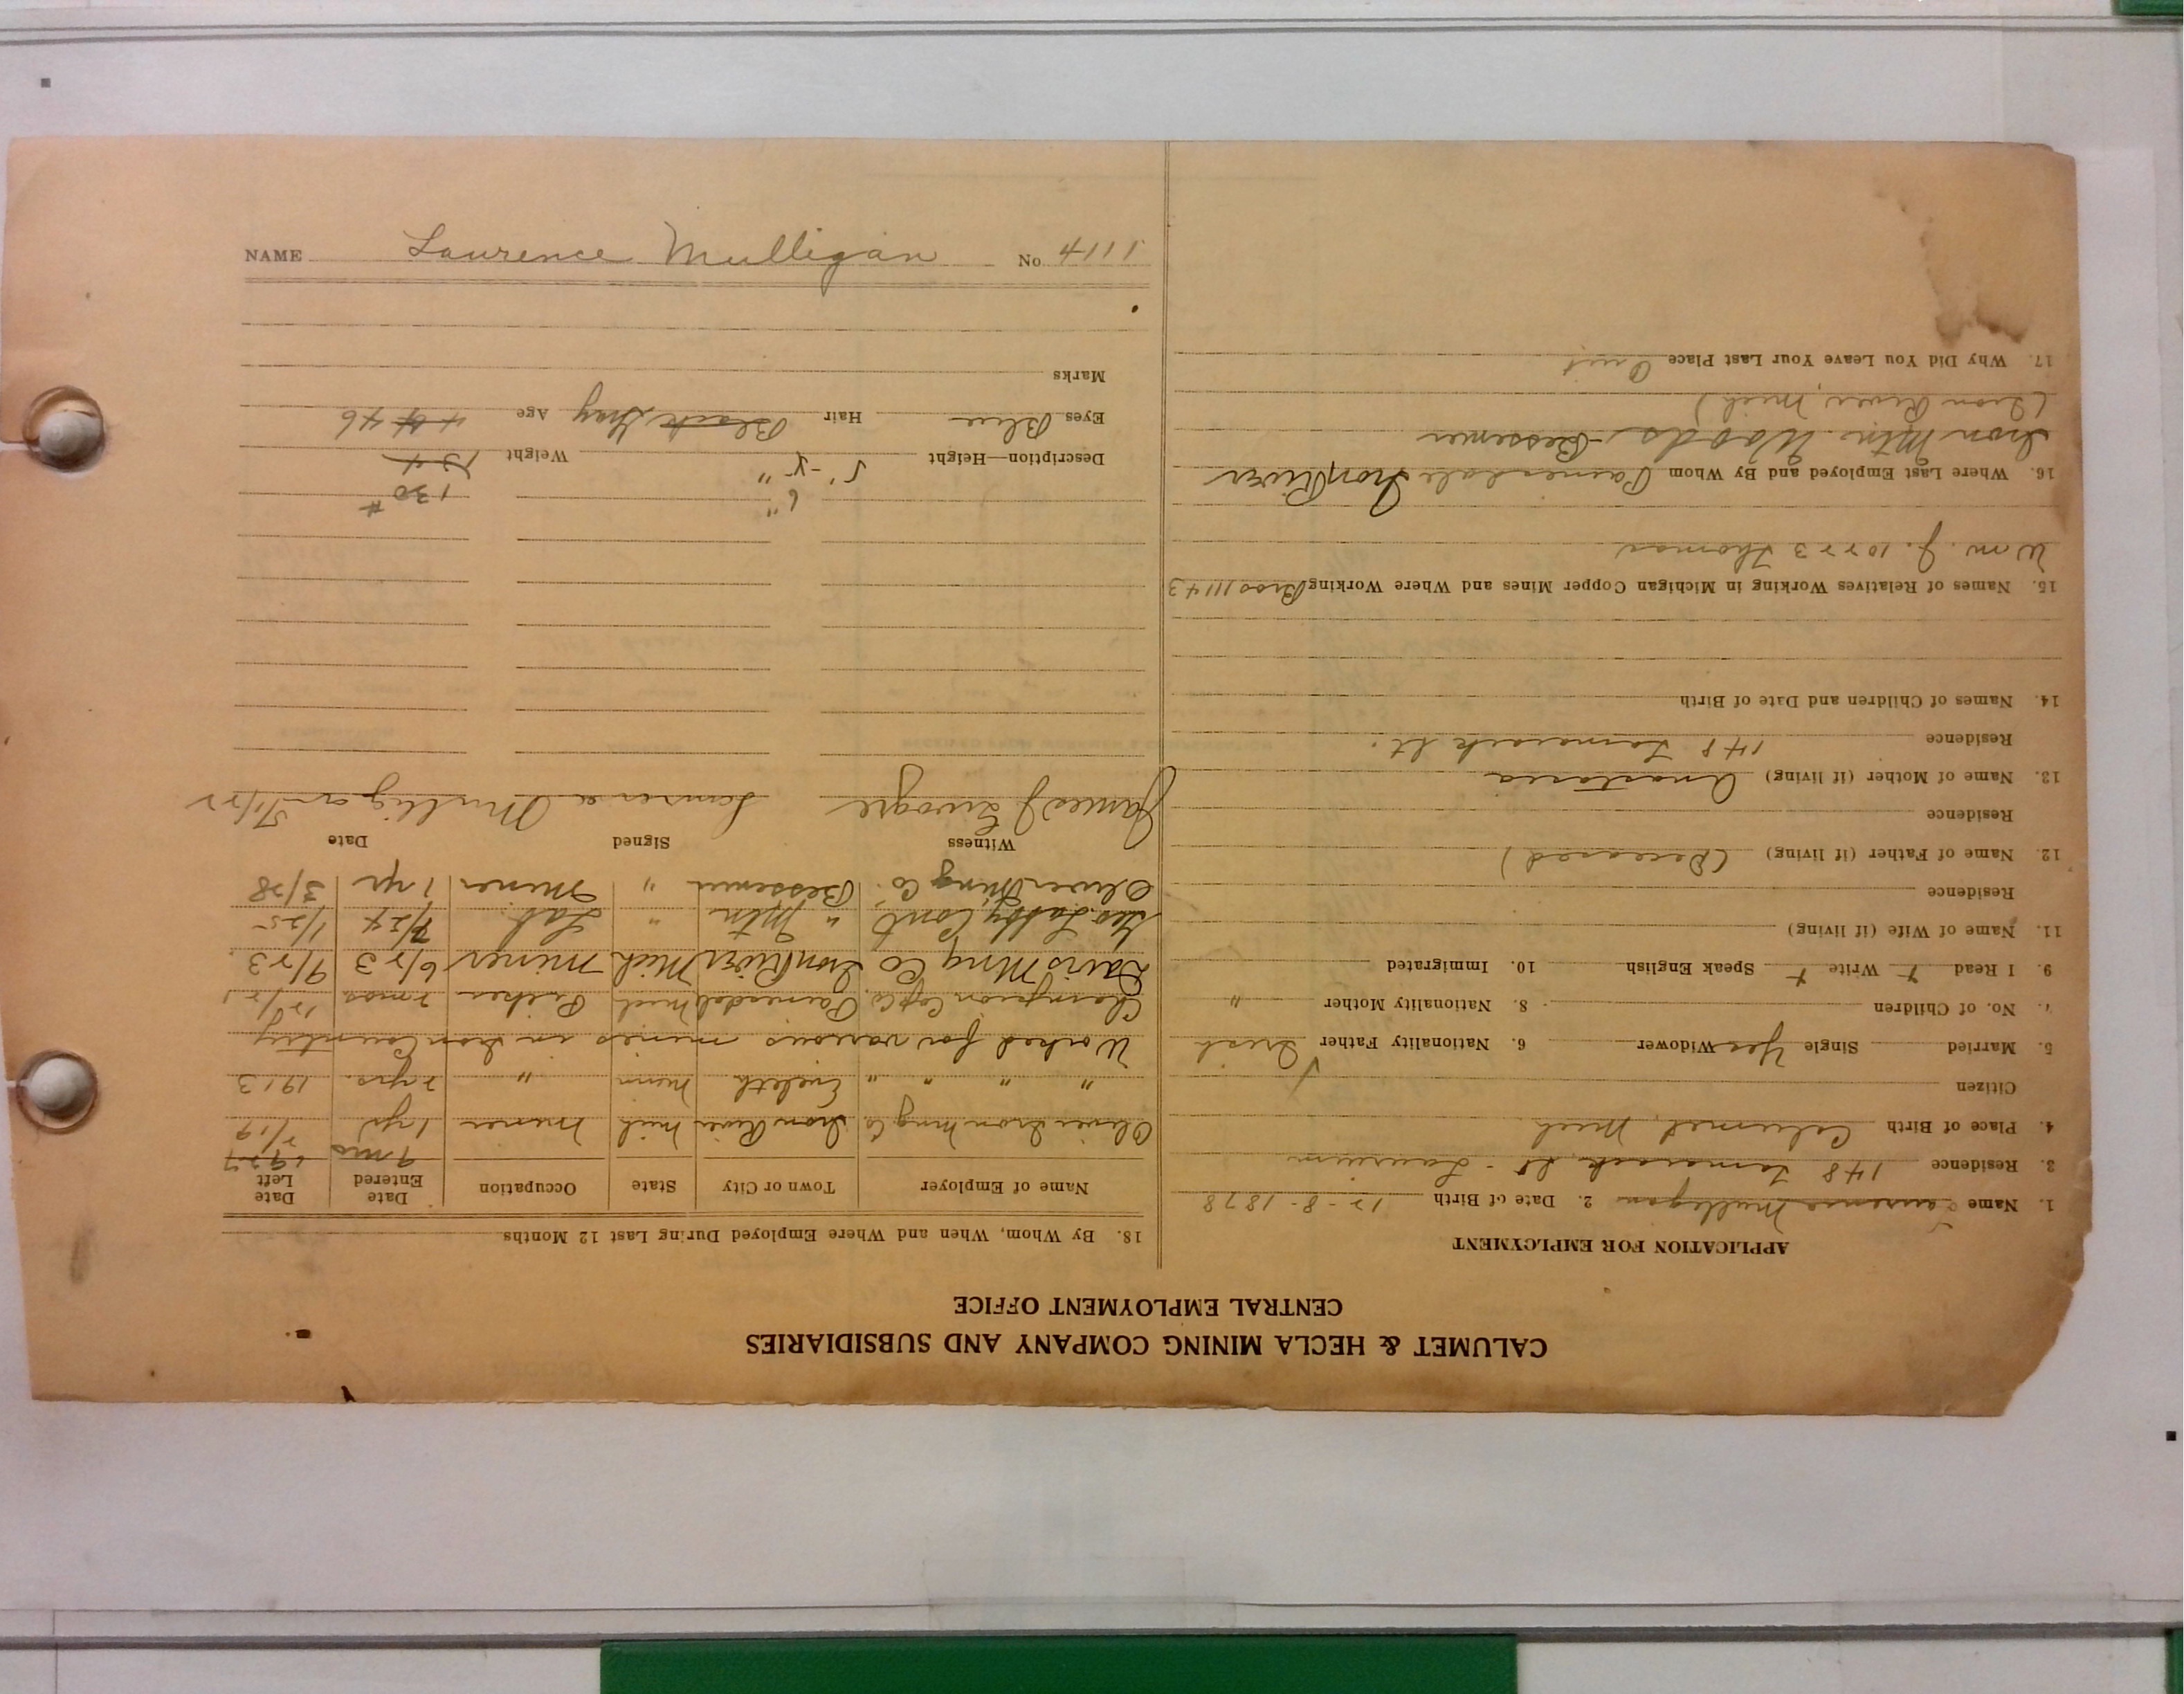 NAME Laurence Mulligan No. 4111
CALUMET & HECLA MINING COMPANY AND SUBSIDIARIES
CENTRAL EMPLOYMENT OFFICE
APPLICATION FOR EMPLOYMENT
1. Name Laurence Mulligan 2. Date of Birth 12-8-1878
3. Residence 148 Tamarack St - Laurium
4. Place of Birth Calumet Mich
Citizen
5. Married Single Yes Widower 6. Nationality Father Irish
7. No. of Children 8. Nationality Mother "
9. I Read + Write + Speak English 10. Immigrated
11. Name of Wife (if living)
Residence
12. Name of Father (if living) (Deceased)
Residence
13. Name of Mother (if living) Anastasia
Residence 148 Tamarack St.
14. Names of Children and Date of Birth
15. Names of Relatives Working in Michigan Copper Mines and Where Working Bros 11143
Wm. J. 10223 Thomas
16. Where Last Employed and By Whom Painesdale Iron River
Iron Mtn. Woods - Bessemer
(Iron River, Mich)
17. Why Did You Leave Your Last Place Quit
18. By Whom, When and Where Employed During Last 12 Months
Name of Employer Town or City State Occupation Date Entered Date Left
9 mo 1927
Oliver Iron Mng Co. Iron River Mich Miner 1 yr. 2/19
" " " " Eveleth Minn " 2 yrs. 1913
Worked for various mines in Iron Country
Champion Cop Co. Painesdale Mich 2 mos. 12/21
Davis Mng Co Iron River Mich Miner 6/23 9/23
Geo. Cont " Mtn " Lab. 7/24 1/25
Oliver Mng Co. Bessemer " Miner 1 yr 3/28
Witness Signed Date
James J. Laurence Mulligan
6" 130 #
Description—Height 5'-5" Weight 154
Eyes Blue Hair Black Gray Age 44 46
Marks